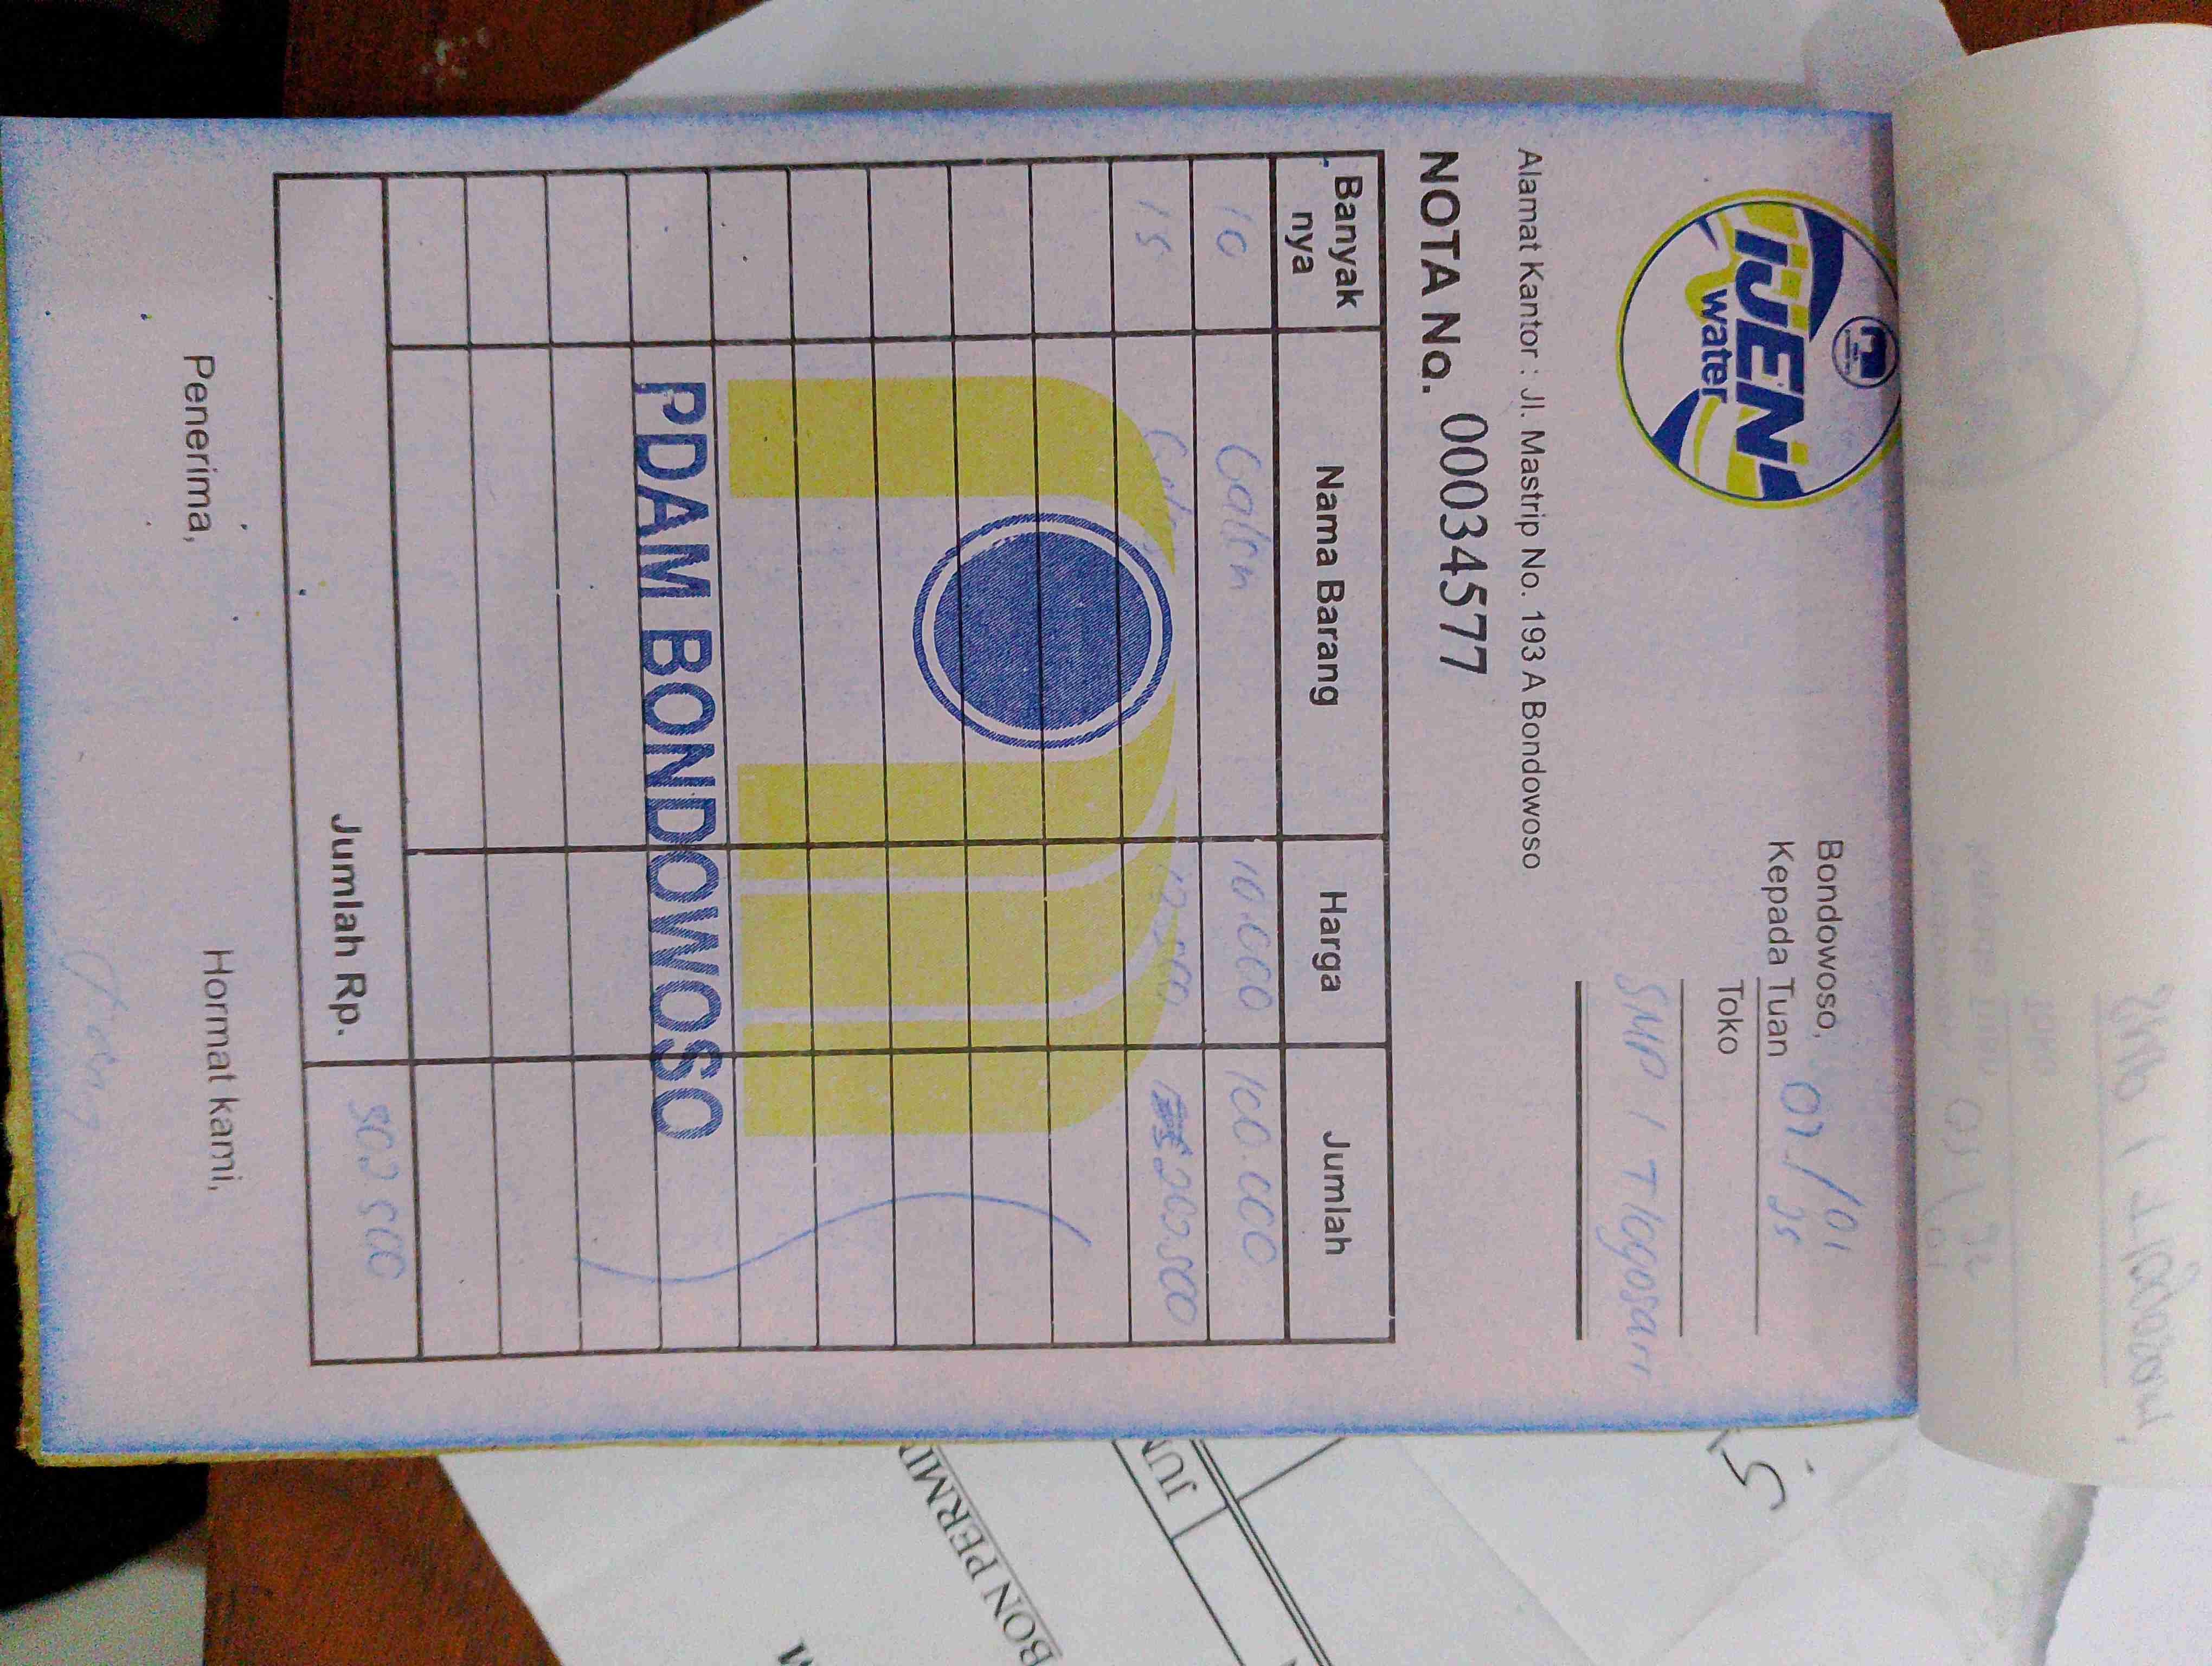 IJEN
water
Bondowoso, 02/01
25
Kepada Tuan
Toko
SMP 1 Tlogosari
Alamat Kantor : Jl. Mastrip No. 193 A Bondowoso
NOTA No. 00034577
Banyak nya Nama Barang Harga Jumlah
10 Galon 10.000 100.000
15 Galon 13500 202500
PDAM BONDOWOSO
Jumlah Rp. 302500
Penerima, Hormat kami,
BON PERMI
JUM